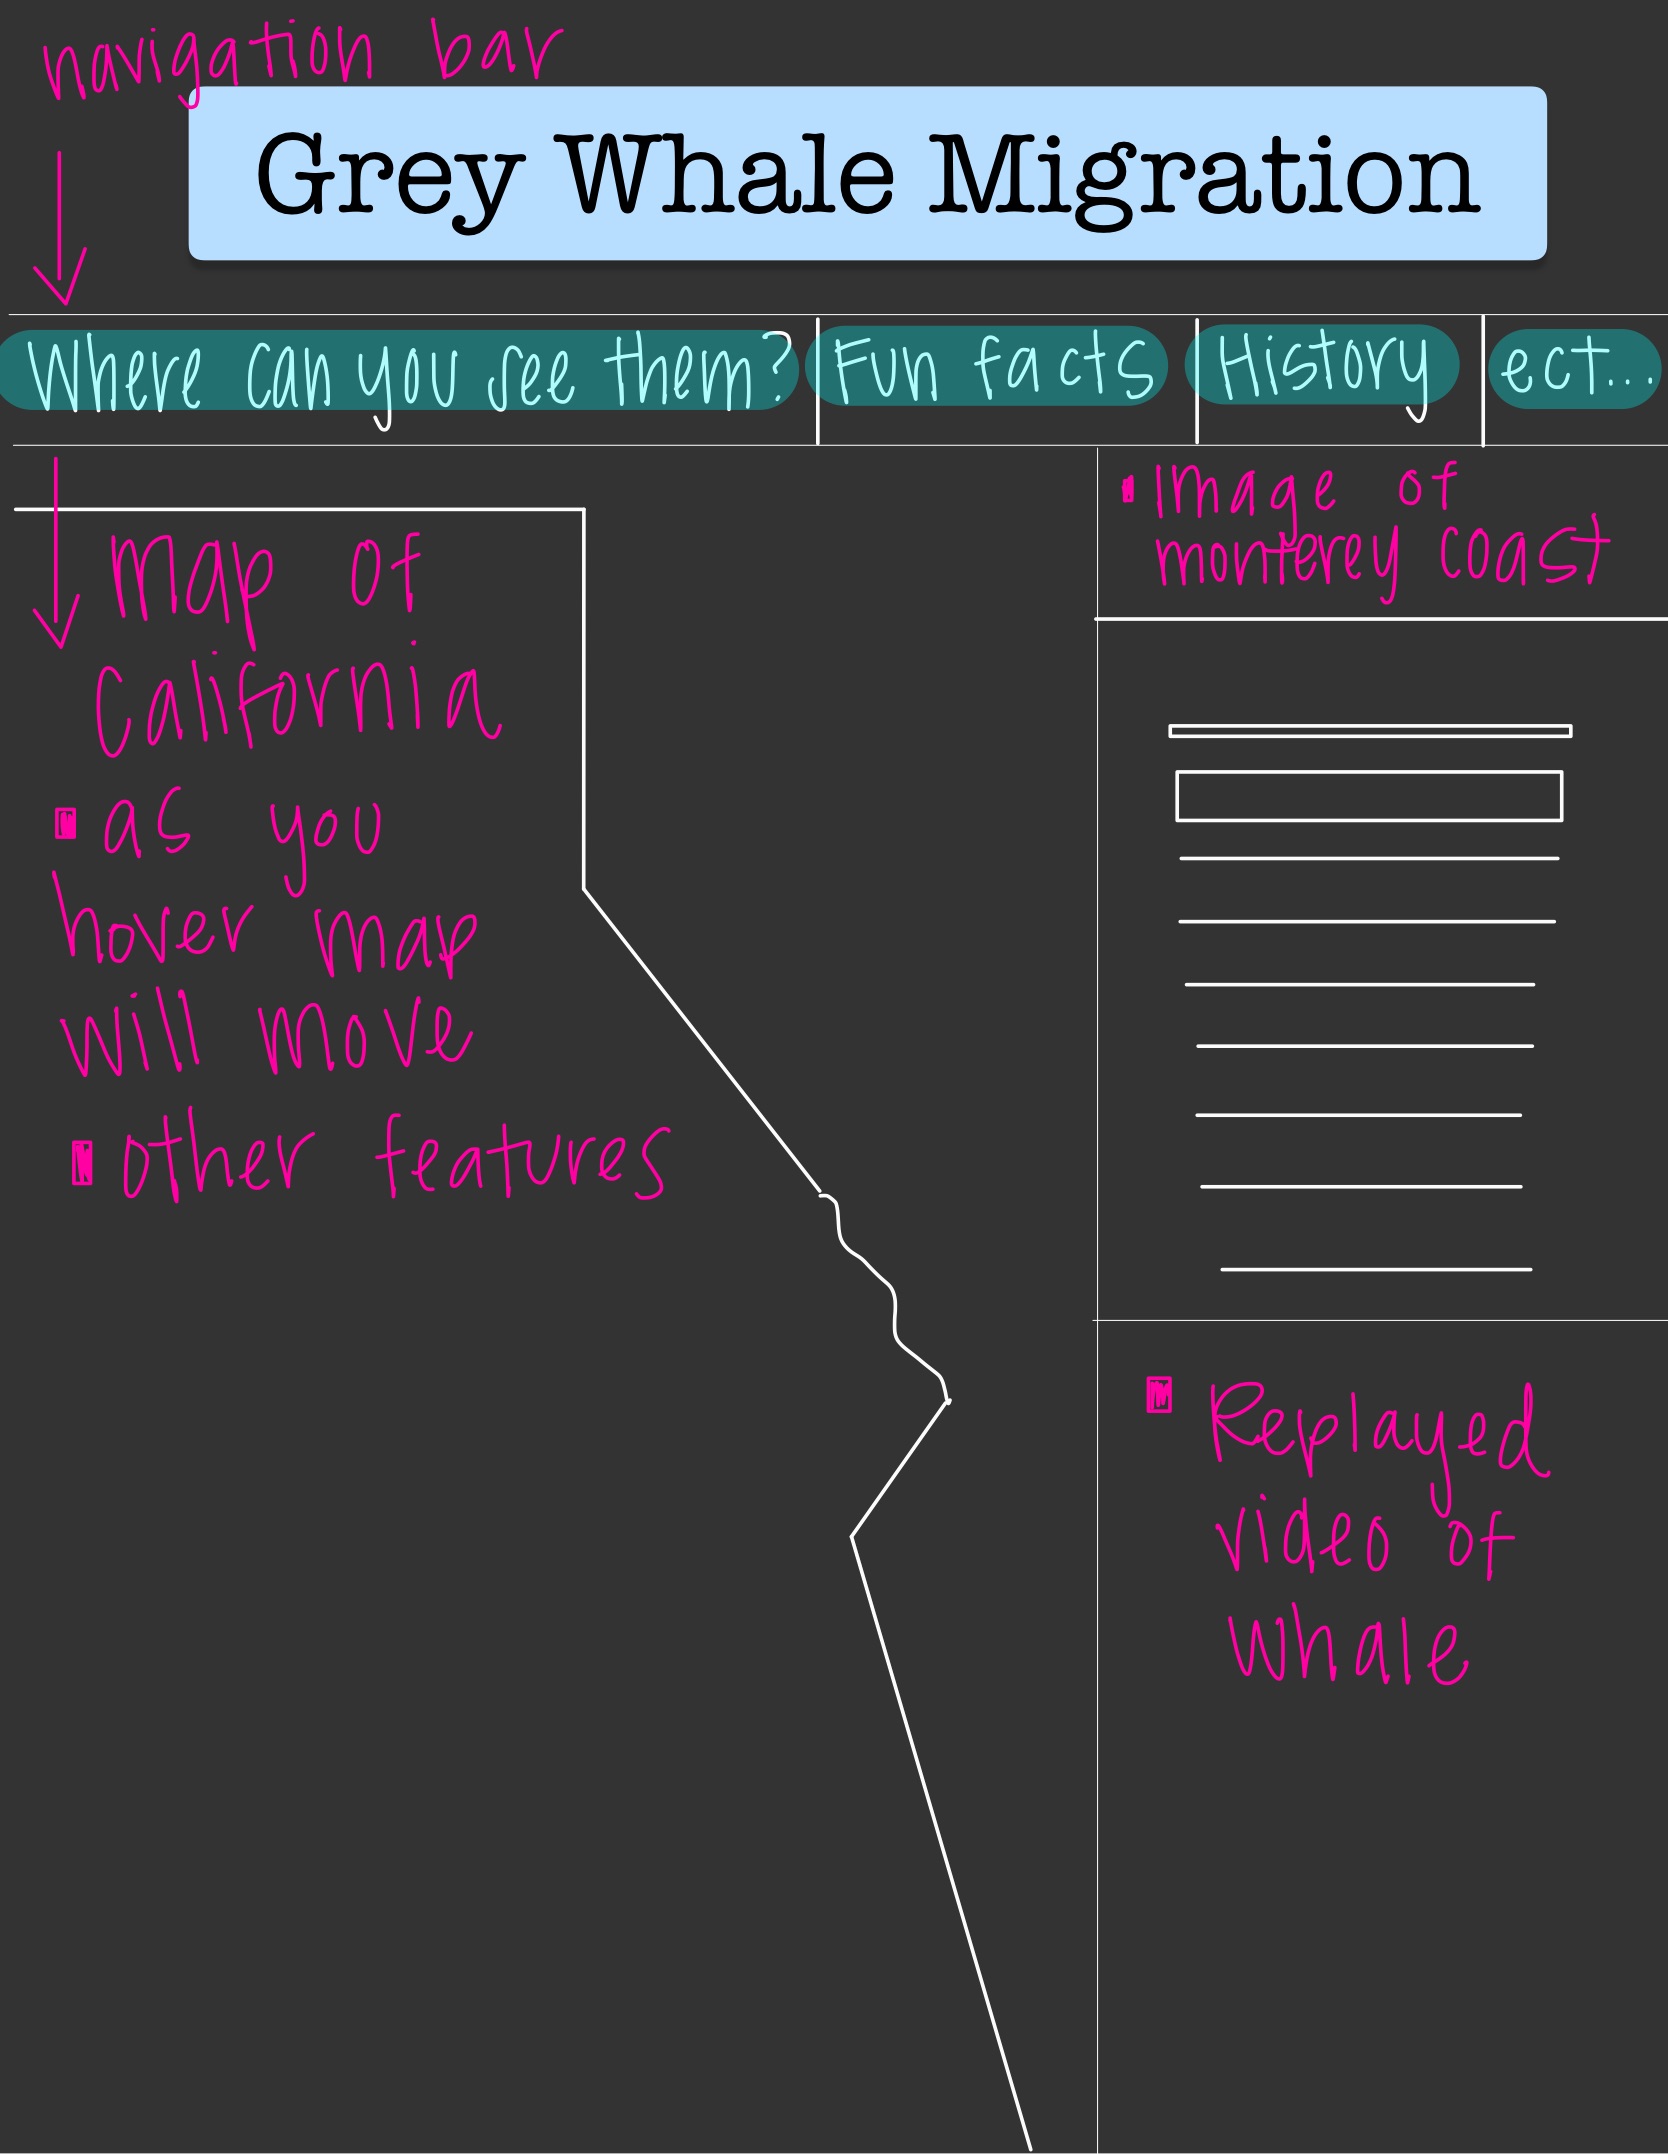 navigation bar
Grey Whale Migration
Where can you see them? Fun facts History ect...
Map of
California
as you
hover map
will move
other features
Image of
monterey coast
Replayed
video of
whale